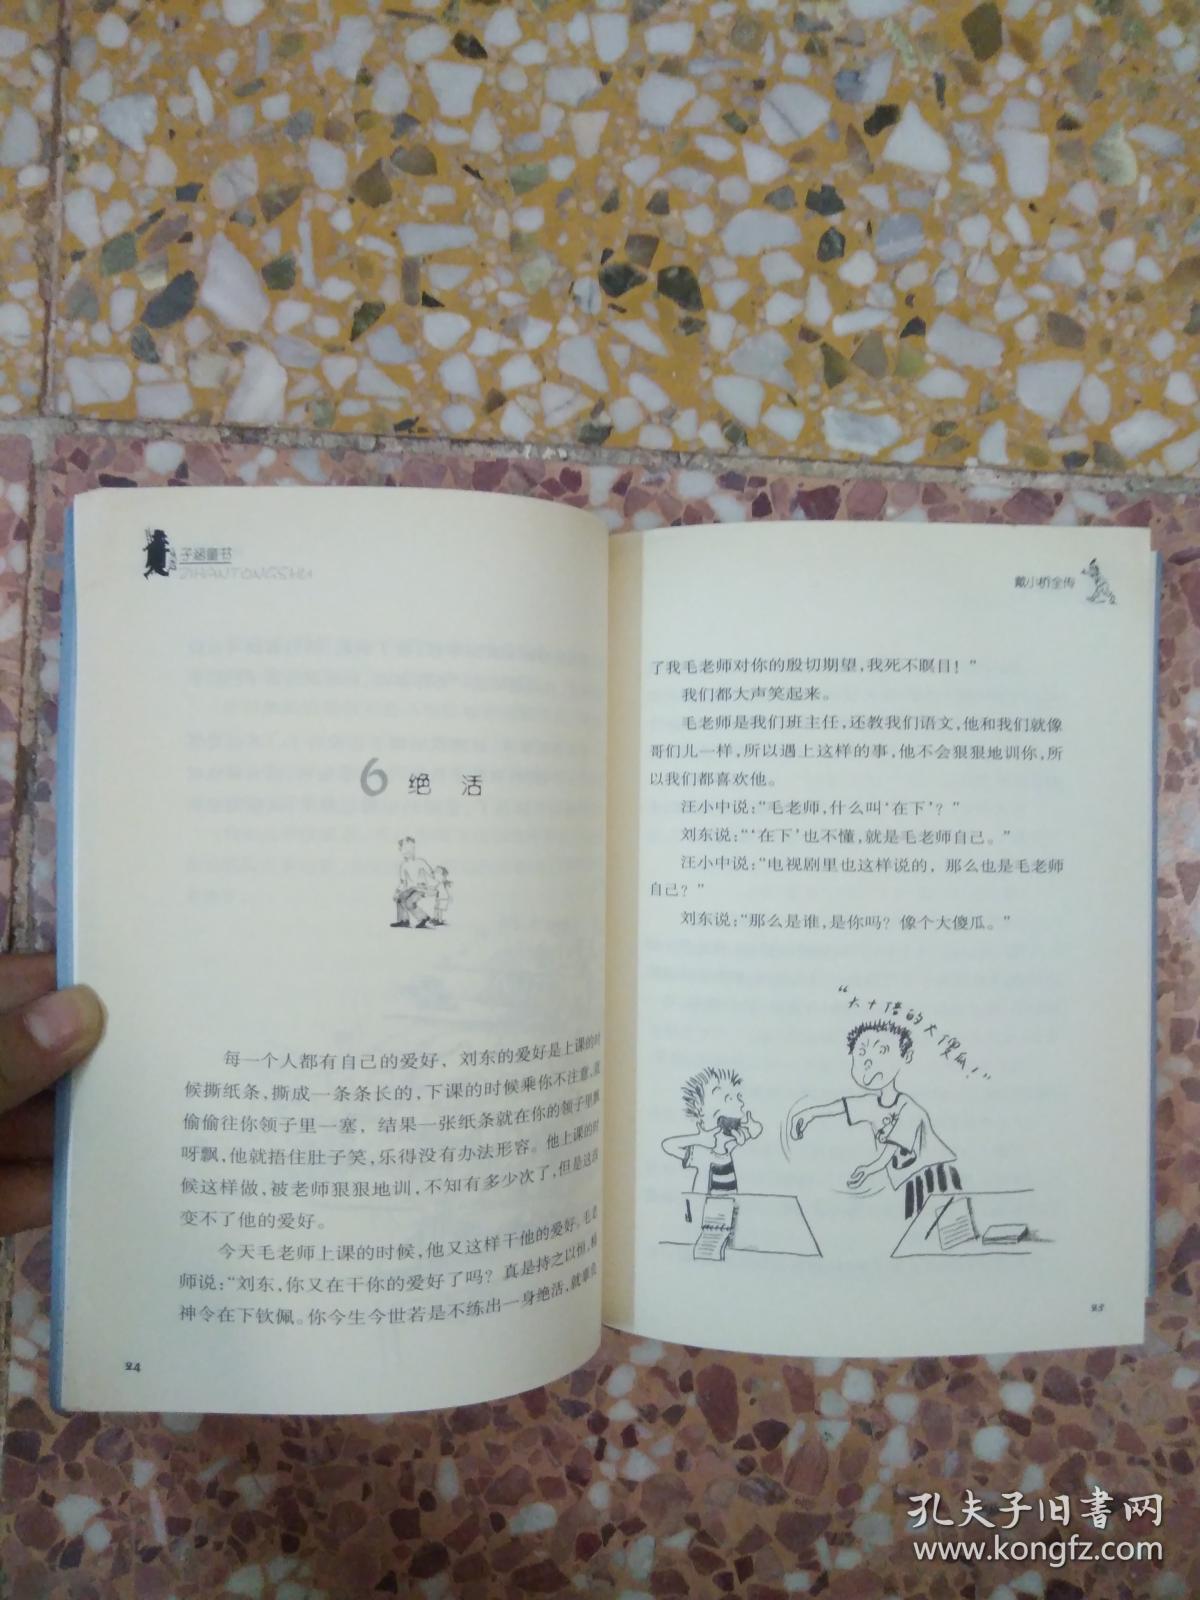 子涵童书
ZIHANTONGSHU
6 绝 活
每一个人都有自己的爱好，刘东的爱好是上课的时
候撕纸条，撕成一条条长的，下课的时候乘你不注意，就
偷偷往你领子里一塞，结果一张纸条就在你的领子里飘
呀飘，他就捂住肚子笑，乐得没有办法形容。他上课的时
候这样做，被老师狠狠地训，不知有多少次了，但是这改
变不了他的爱好。
今天毛老师上课的时候，他又这样干他的爱好。毛老
师说：“刘东，你又在干你的爱好了吗？真是持之以恒，精
神令在下钦佩。你今生今世若是不练出一身绝活，就辜负
24
戴小桥全传
了我毛老师对你的殷切期望，我死不瞑目！”
我们都大声笑起来。
毛老师是我们班主任，还教我们语文，他和我们就像
哥们儿一样，所以遇上这样的事，他不会狠狠地训你，所
以我们都喜欢他。
汪小中说：“毛老师，什么叫‘在下’？”
刘东说：“‘在下’也不懂，就是毛老师自己。”
汪小中说：“电视剧里也这样说的，那么也是毛老师
自己？”
刘东说：“那么是谁，是你吗？像个大傻瓜。”
“大十倍的大傻瓜！”
25
孔夫子旧书网
www.kongfz.com